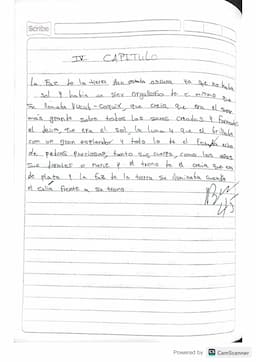 Scribe
IV. CAPITULO
La Faz de la tierra era estaba oscura ya que no había
sol y había un ser orgulloso de si mismo que
se llamaba Vucub-Caquix, que creía que era el ser
más grande sobre todos los seres creados y formados
el decía que era el sol, la luna y que el brillaba
con un gran esplendor y todo lo de el estaba echo
de piedras preciosas, tanto sus cuerpo, como los ojos
sus dientes o nariz y el trono de el creía que era
de plata y la faz de la tierra se iluminaba cuando
el salía frente a su trono
Powered by CS CamScanner